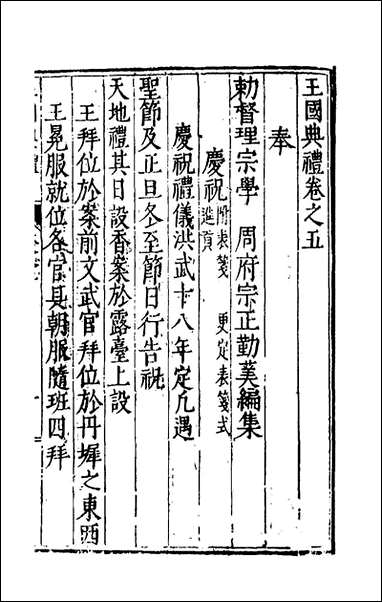 王國典禮卷之五
奉
勅督理宗學　周府宗正勤羙編集
慶祝附表箋　更定表箋式
進賀
慶祝禮儀洪武十八年定凡遇
聖節及正旦冬至節日行告祝
天地禮其日設香案於露臺上設
王拜位於案前文武官拜位於丹墀之東西
王冕服就位各官具朝服隨班四拜